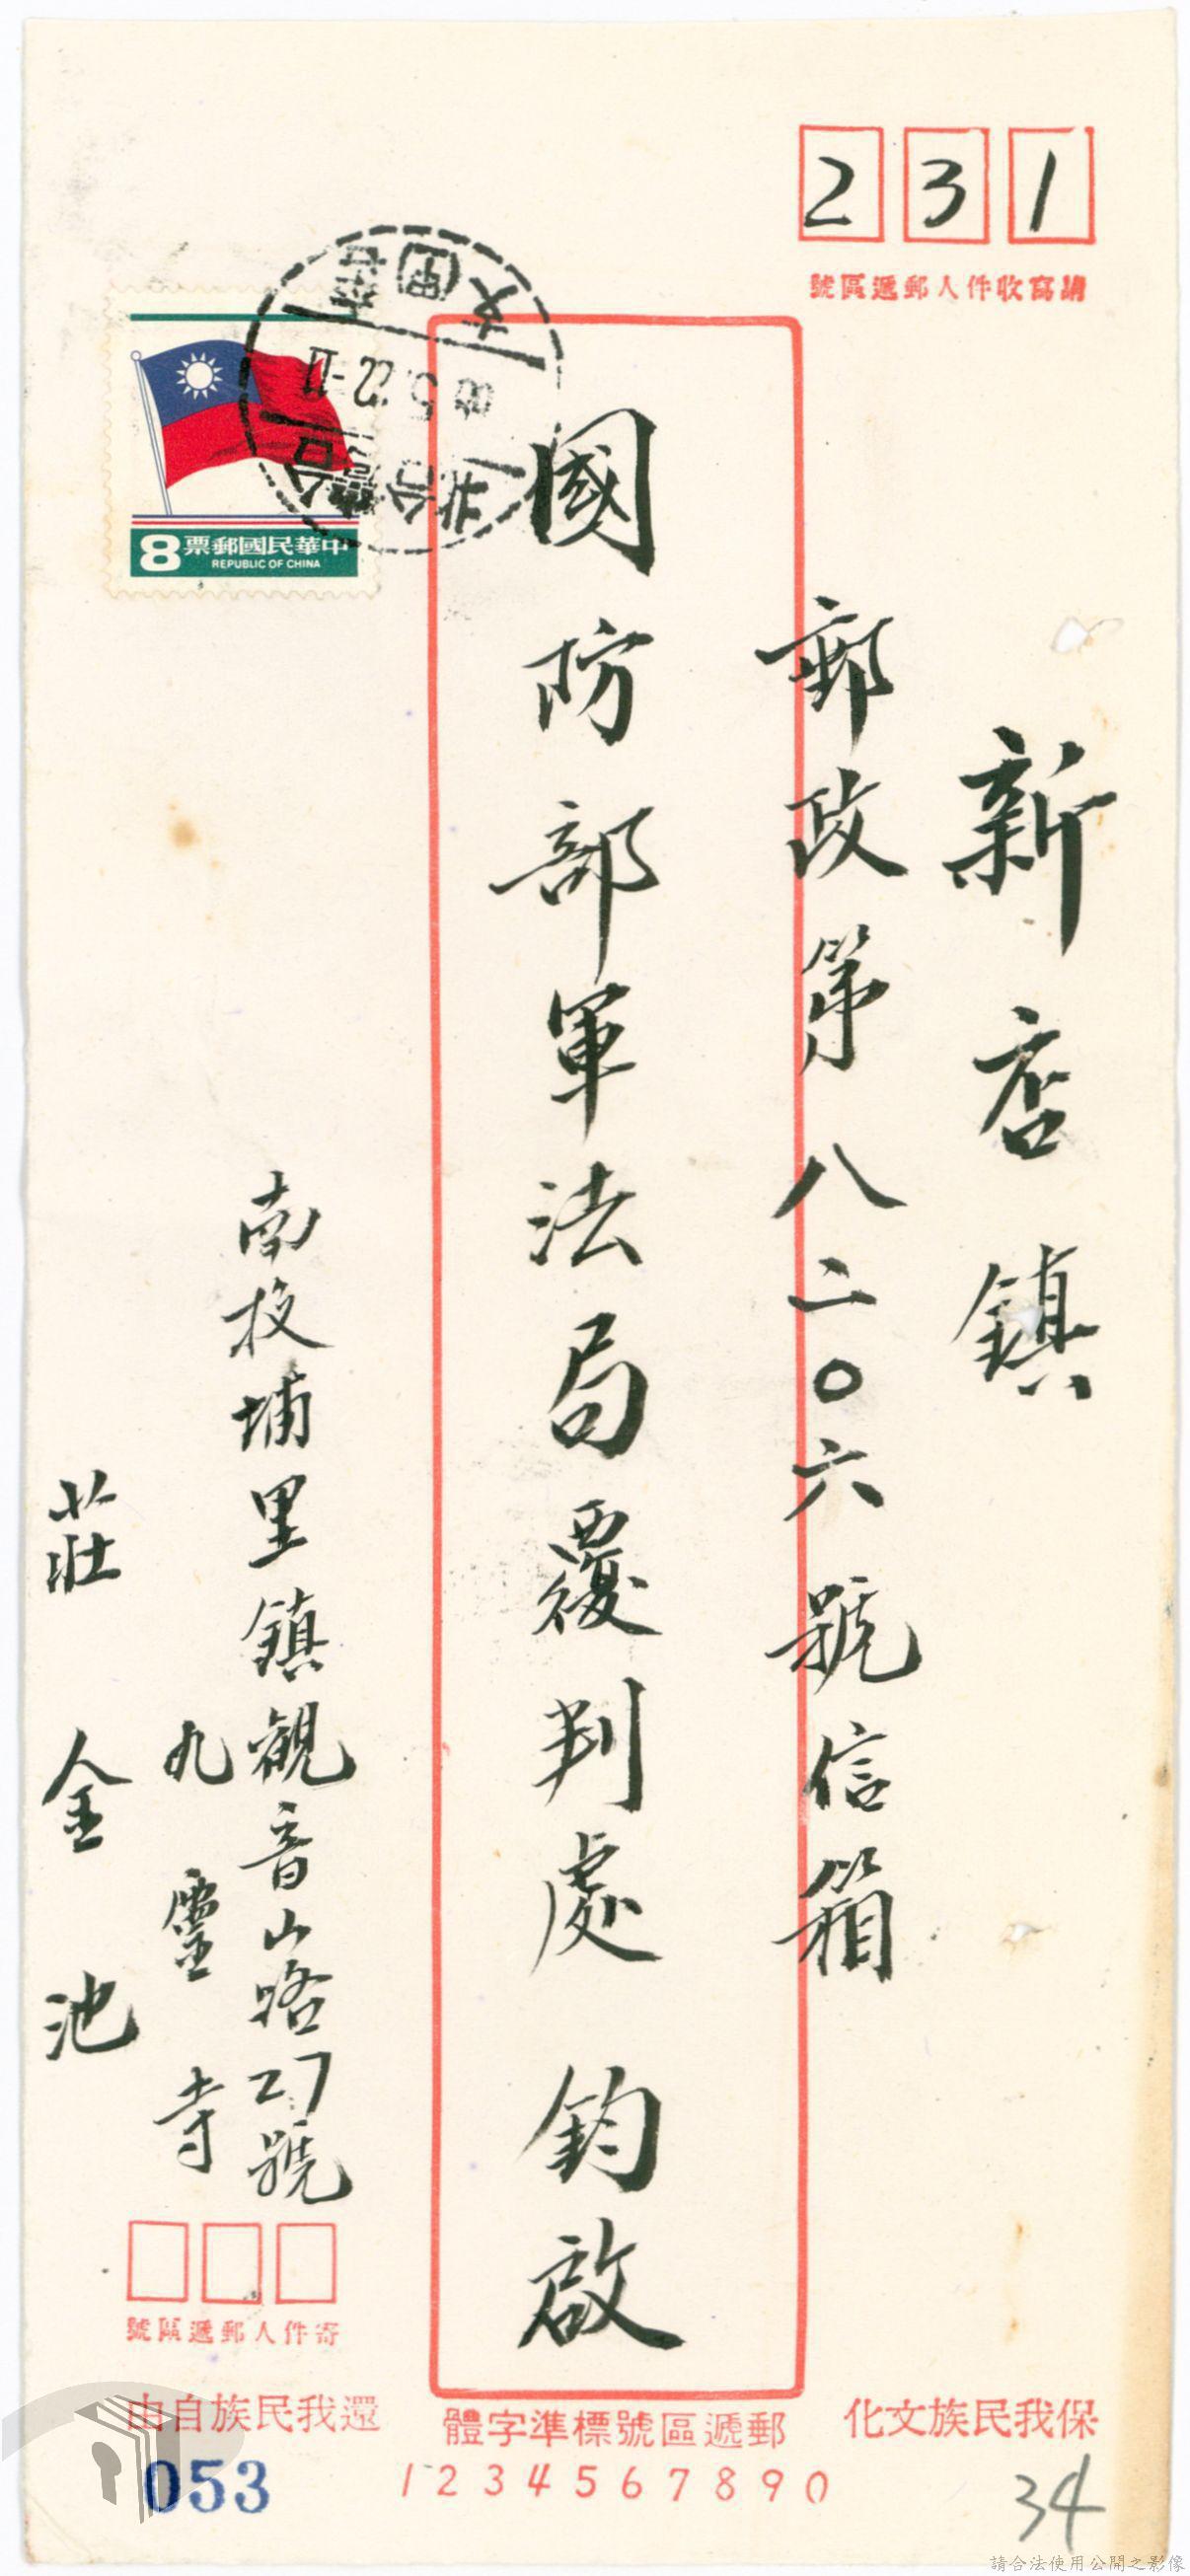 231
請寫收件人郵遞區號
新店鎮
郵政第八二〇六號信箱
國防部軍法局覆判處 鈞啟
中華民國郵票
8
REPUBLIC OF CHINA
南投埔里鎮觀音山路27號
九靈寺
莊金池
寄件人郵遞區號
保我民族文化
郵遞區號標準字體
還我民族自由
1234567890
053
34
請合法使用公開之影像